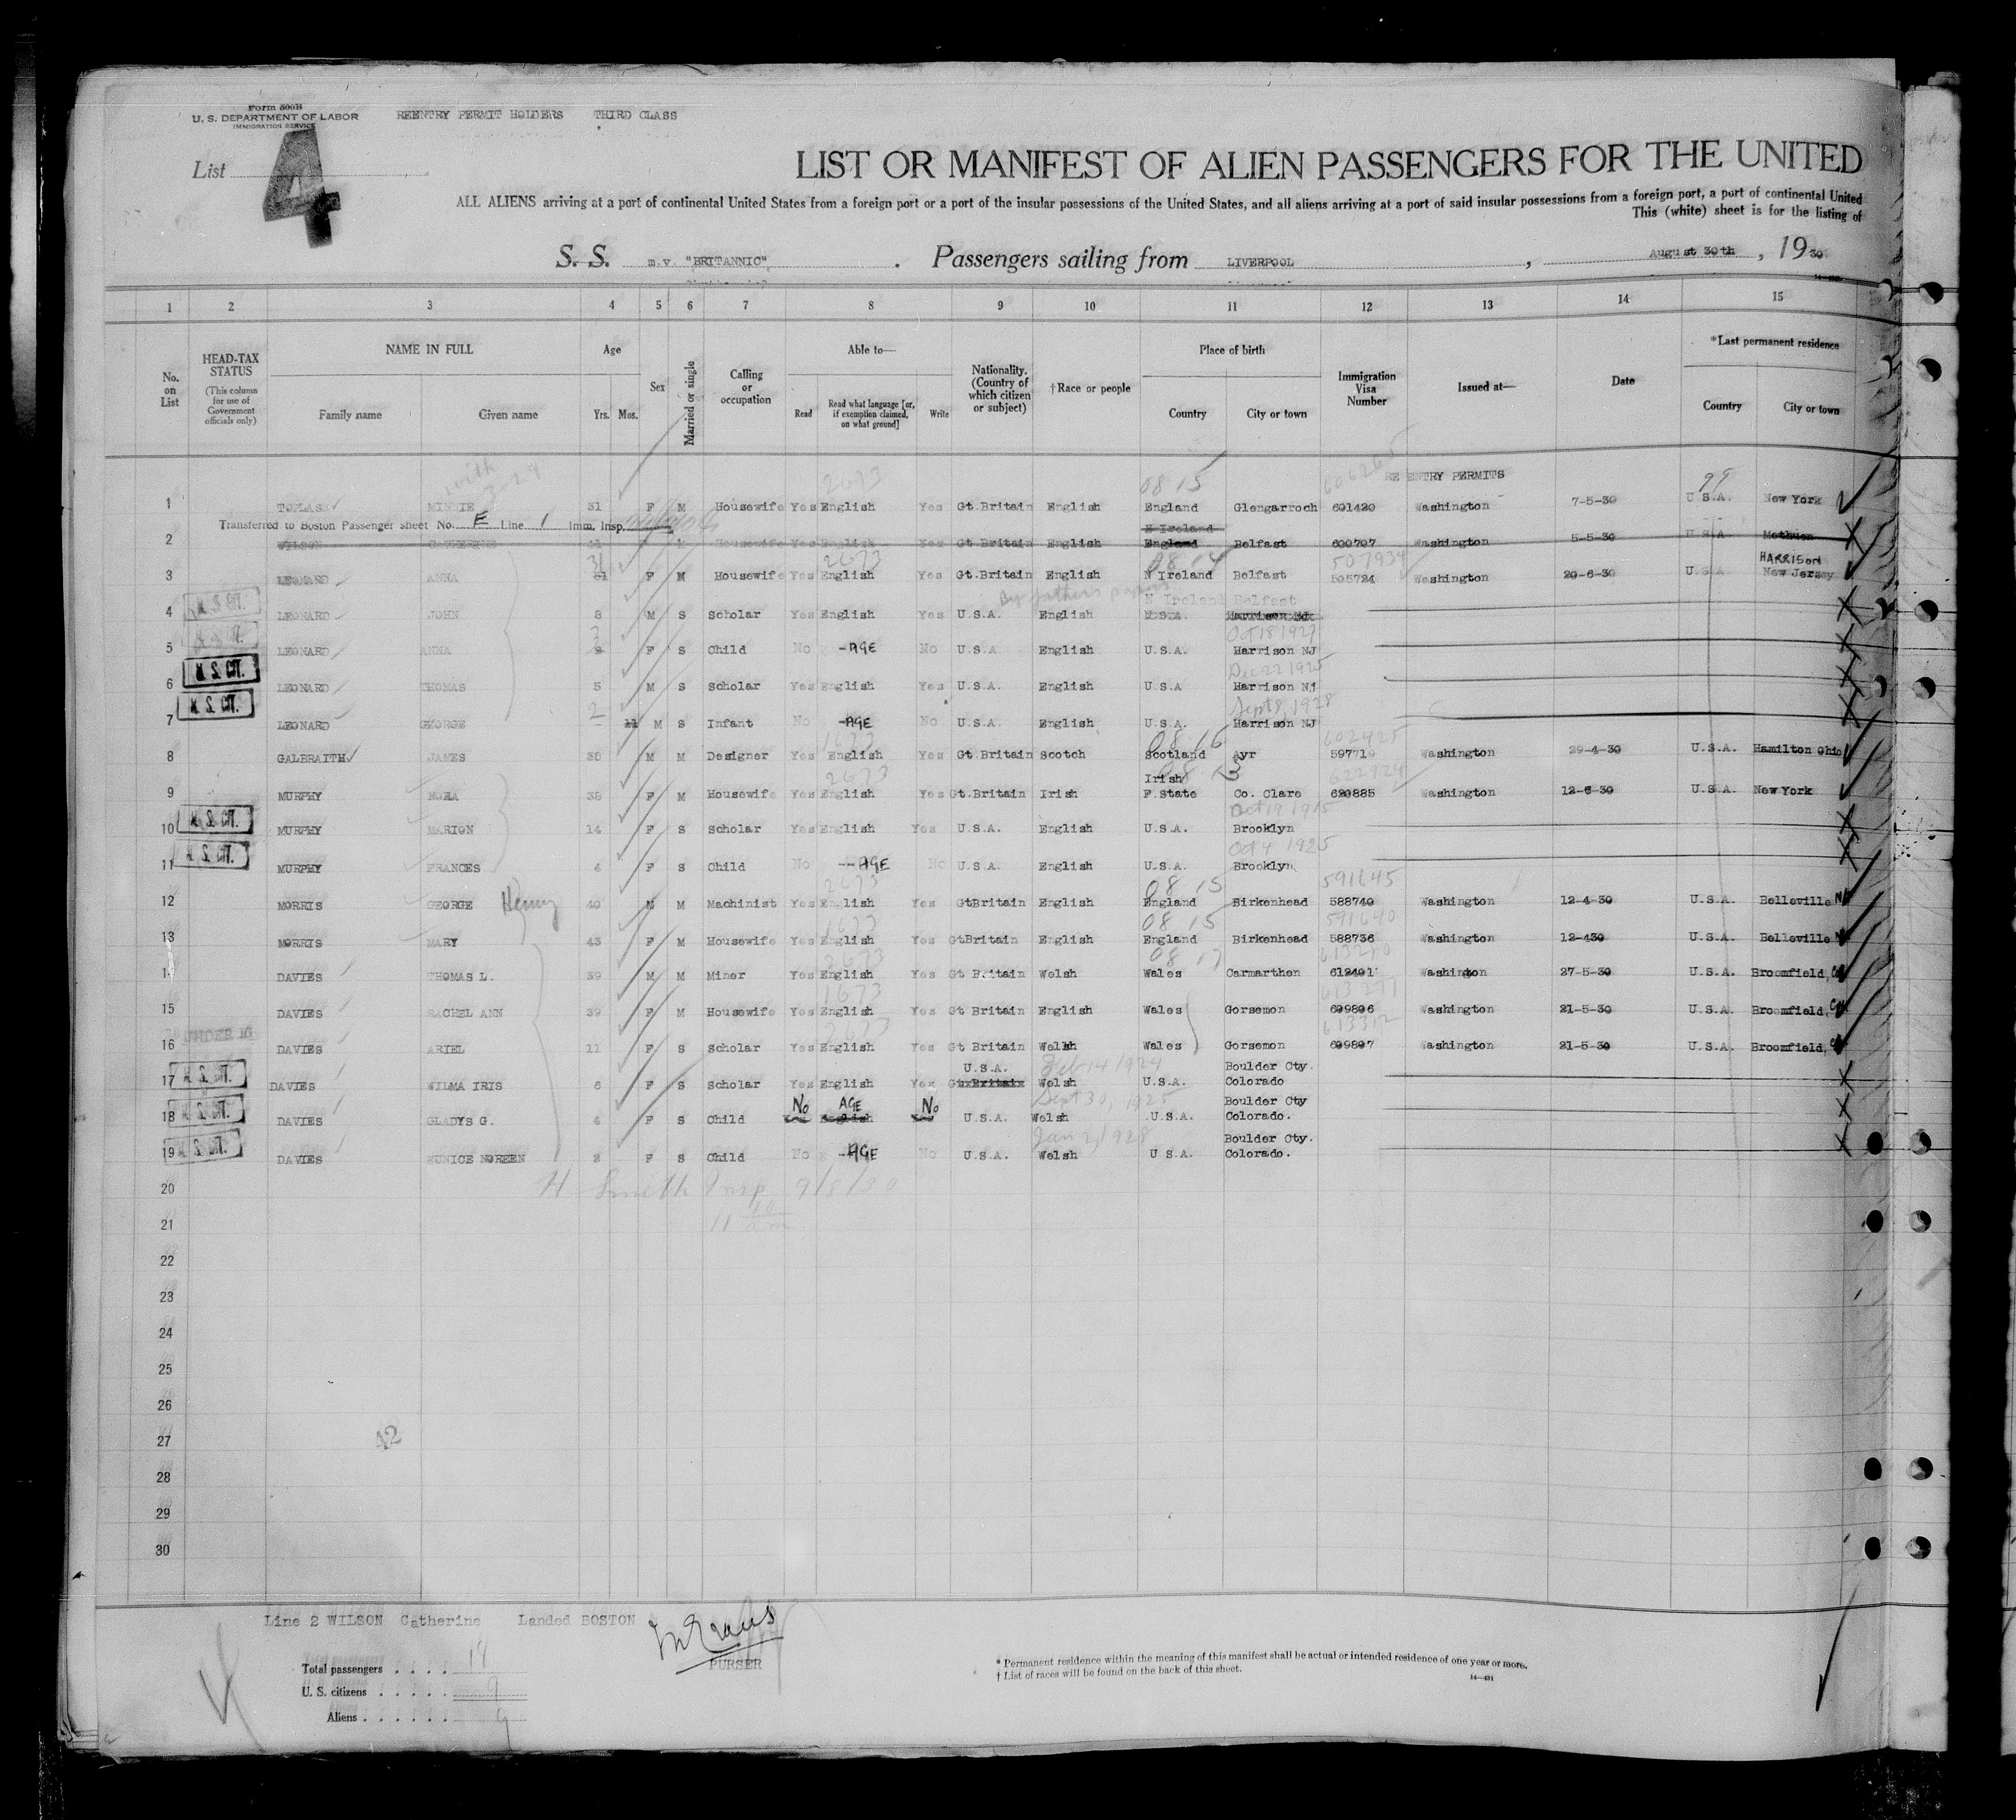 Form 500B
U. S. DEPARTMENT OF LABOR
IMMIGRATION SERVICE
REENTRY PERMIT HOLDERS THIRD CLASS
List 4
LIST OR MANIFEST OF ALIEN PASSENGERS FOR THE UNITED
ALL ALIENS arriving at a port of continental United States from a foreign port or a port of the insular possessions of the United States, and all aliens arriving at a port of said insular possessions from a foreign port, a port of continental United
This (white) sheet is for the listing of
S. S. m.v. "BRITANNIC" . Passengers sailing from LIVERPOOL , August 30th , 1930
1 2 3 4 5 6 7 8 9 10 11 12 13 14 15
No. on List
HEAD-TAX STATUS
(This column for use of Government officials only)
NAME IN FULL
Family name Given name
Age
Yrs. Mos.
Sex
Married or single
Calling or occupation
Able to—
Read
Read what language [or, if exemption claimed, on what ground]
Write
Nationality. (Country of which citizen or subject)
†Race or people
Place of birth
Country City or town
Immigration Visa Number
Issued at—
Date
*Last permanent residence
Country City or town
RE ENTRY PERMITS
with 3-29 2673 08 15 606265 99
1 MINNIE 31 F M Housewife Yes English Yes Gt.Britain English England Glengarroch 601420 Washington 7-5-30 U S.A. New York
Transferred to Boston Passenger sheet No. E Line 1 Imm. Insp.
N Ireland
2 WILSON CATHERINE M Housewife Yes English Yes Gt Britain English England Belfast 600707 Washington 5-5-30 U S A Methuen
31 2673 08 14 507934 HARRISON
3 LEONARD ANNA 31 F M Housewife Yes English Yes Gt.Britain English N Ireland Belfast 505724 Washington 20-6-30 U.S.A New Jersey
U. S. CIT. By father's papers N Ireland Belfast
4 LEONARD JOHN 8 M S Scholar Yes English Yes U.S.A. English U.S.A.
U. S. CIT. Oct 18 1927
5 LEONARD ANNA F S Child No -AGE No U.S.A English U.S.A. Harrison NJ
U. S. CIT. Dec 22 1925
6 LEONARD THOMAS 5 M S Scholar Yes English Yes U.S.A. English U.S.A Harrison Nj
U. S. CIT. 2 Sept 8, 1928
7 LEONARD GEORGE 11 M S Infant No -AGE No U.S.A. English U.S.A. Harrison NJ
08 16 602425
8 GALBRAITH JAMES 38 M M Designer Yes English Yes Gt.Britain Scotch Scotland Ayr 597719 Washington 29-4-30 U.S.A. Hamilton Ohio
2673 Irish 08 13 622924
9 MURPHY NORA 38 F M Housewife Yes English Yes Gt.Britain Irish F.State Co. Clare 620885 Washington 12-6-30 U.S.A. New York
U. S. CIT. Oct 19 1915
10 MURPHY MARION 14 F S Scholar Yes English Yes U.S.A. English U.S.A. Brooklyn
U. S. CIT. Oct 4 1925
11 MURPHY FRANCES 4 F S Child No --AGE No U.S.A. English U.S.A. Brooklyn
2673 08 15 591645
12 MORRIS GEORGE Henry 40 M M Machinist Yes English Yes GtBritain English England Birkenhead 588740 Washington 12-4-30 U.S.A. Belleville
1673 08 15 591640
13 MORRIS MARY 43 F M Housewife Yes English Yes GtBritain English England Birkenhead 588736 Washington 12-430 U.S.A. Belleville
2673 08 17
14 DAVIES THOMAS L. 39 M M Miner Yes English Yes Gt Britain Welsh Wales Carmarthen 612401 Washington 27-5-30 U.S.A. Broomfield,
1673
15 DAVIES RACHEL ANN 39 F M Housewife Yes English Yes Gt Britain English Wales Gorsemon 609806 Washington 21-5-30 U.S.A. Broomfield,
UNDER 16 2673 613312
16 DAVIES ARIEL 11 F S Scholar Yes English Yes Gt Britain Welsh Wales Gorsemon 609807 Washington 21-5-30 U.S.A. Broomfield,
U.S.A. Feb 14 1924 Boulder Cty.
17 U. S. CIT. DAVIES WILMA IRIS 6 F S Scholar Yes English Yes GtxBritain Welsh U.S.A. Colorado
No AGE No Sept 30, 1925 Boulder Cty
18 U. S. CIT. DAVIES GLADYS G. 4 F S Child English U.S.A. Welsh U.S.A. Colorado.
Jan 2, 1928 Boulder Cty.
19 U. S. CIT. DAVIES EUNICE NOREEN 2 F S Child No -AGE No U.S.A. Welsh U S.A. Colorado.
20 H Smith Insp 9/8/30
21 11 10 am
22
23
24
25
26
27 42
28
29
30
Line 2 WILSON Catherine Landed BOSTON
PURSER
Total passengers . . . .
U. S. citizens . . . . . 9
Aliens . . . . . . 9
* Permanent residence within the meaning of this manifest shall be actual or intended residence of one year or more.
† List of races will be found on the back of this sheet.
14—431